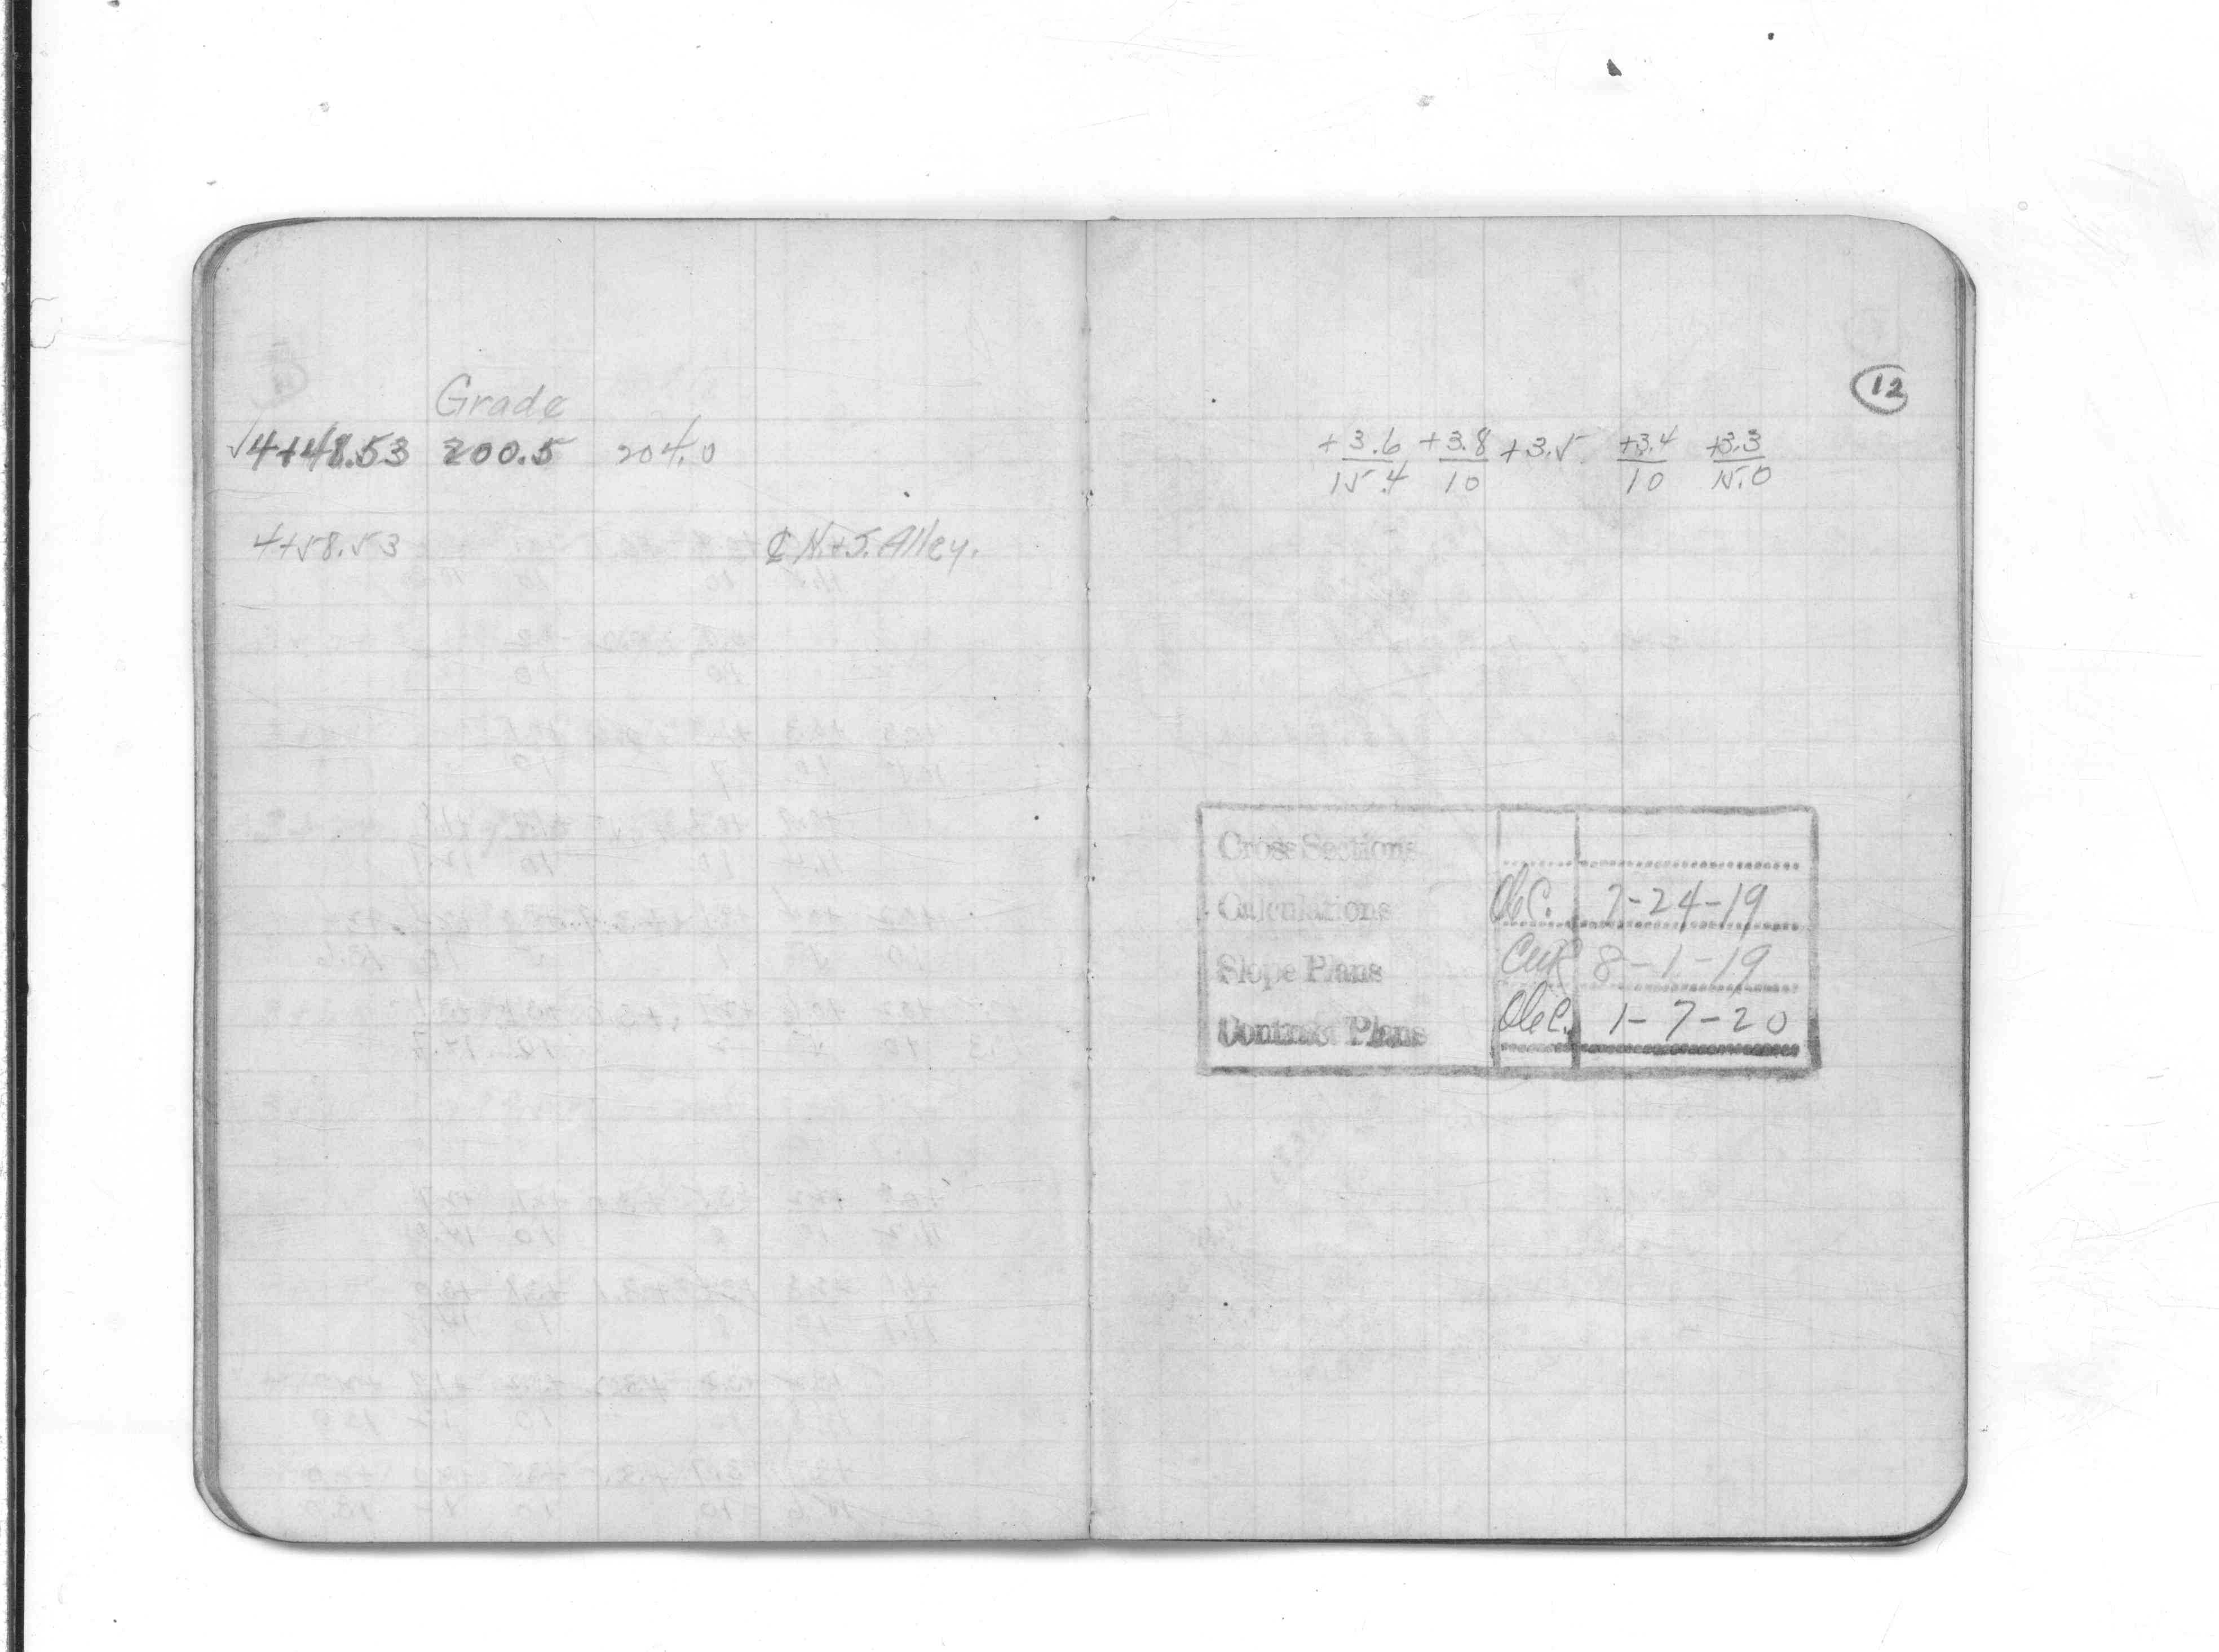 Grade
√4+48.53 200.5 204.0
4+58.53 ℄ N.+S. Alley.
12
+3.6 +3.8 +3.5 +3.4 +3.3
15.4 10 10 15.0
Cross Sections
Calculations 7-24-19
Slope Plans 8-1-19
Contract Plans 1-7-20